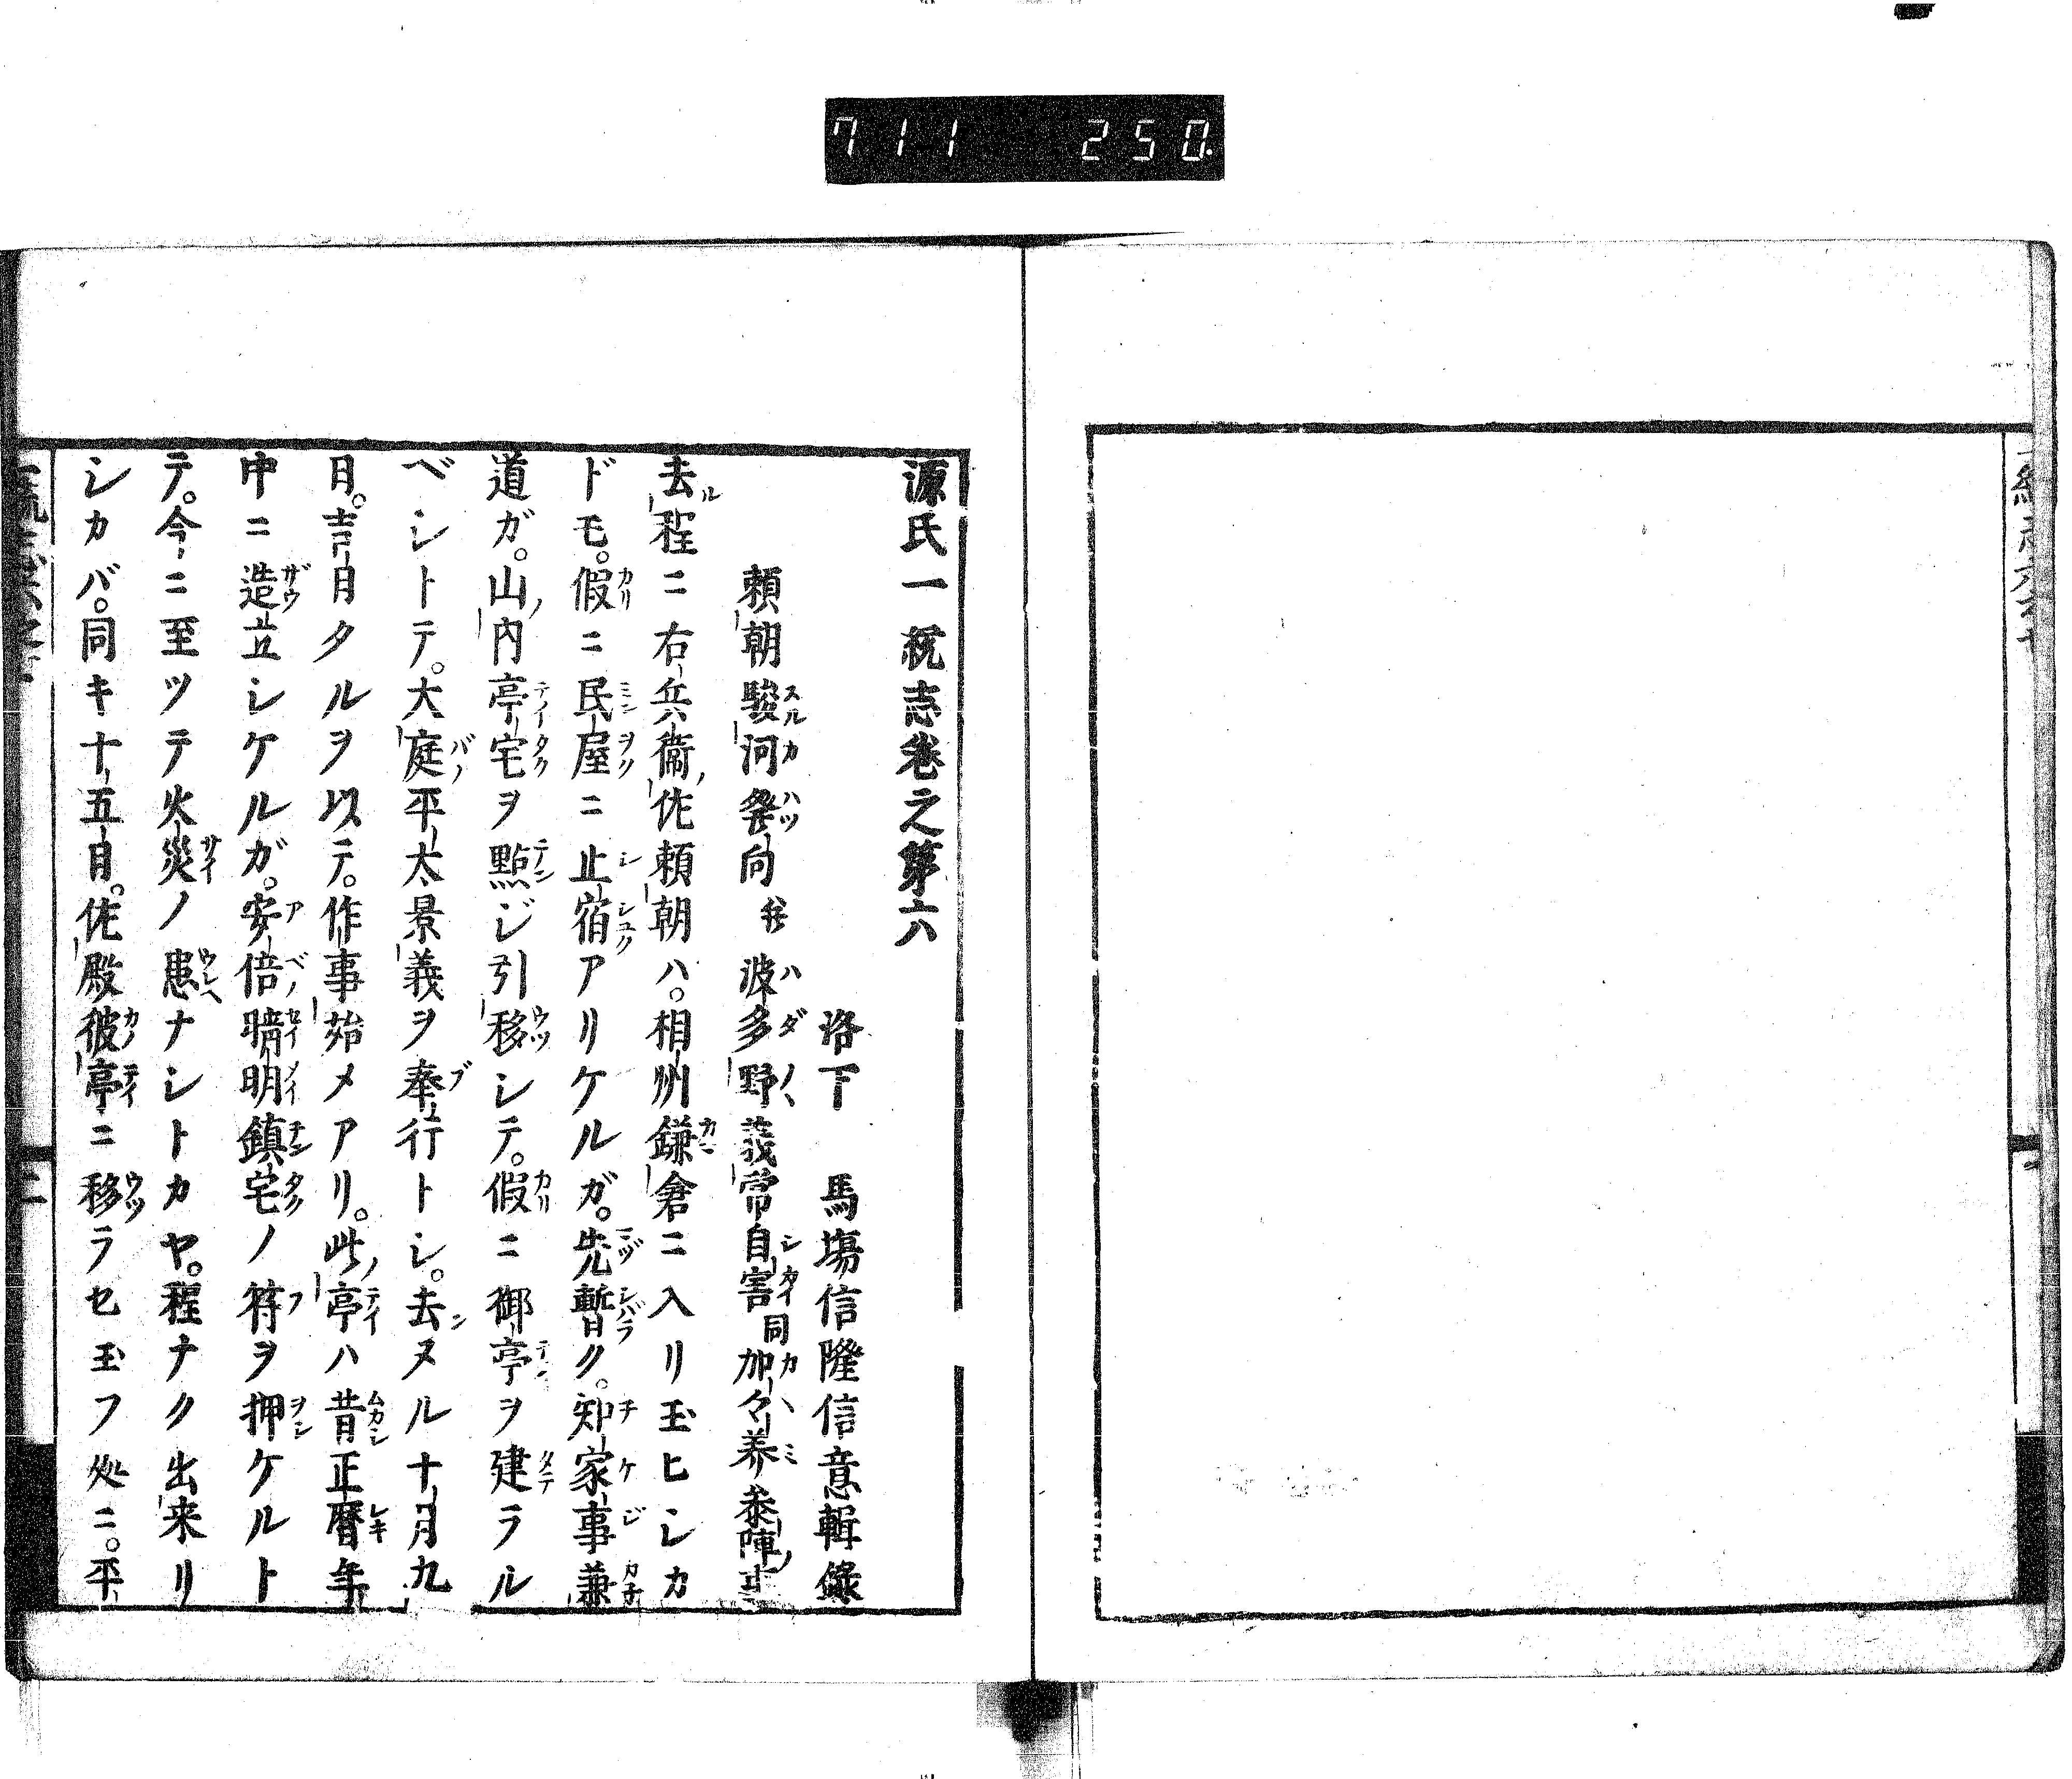 711 250
源氏一統志卷之第六
洛下 馬塲信隆信意輯錄
頼朝駿河發向 并 波多野義常自害 同加々美参陣事
去程ニ右兵衞佐頼朝ハ。相州鎌倉ニ入リ玉ヒシカ
ドモ。假ニ民屋ニ止宿アリケルガ。先暫ク。知家事兼
道ガ。山内亭宅ヲ點ジ引移シテ。假ニ御亭ヲ建ラル
ベシトテ。大庭平太景義ヲ奉行トシ。去ヌル十月九
日。吉月タルヲ以テ。作事始メアリ。此亭ハ昔正曆年
中ニ造立シケルガ。安倍晴明鎮宅ノ符ヲ押ケルト
テ。今ニ至ツテ火災ノ患ナシトカヤ。程ナク出来リ
シカバ。同キ十五日。佐殿彼亭ニ移ラセ玉フ処ニ。平
二